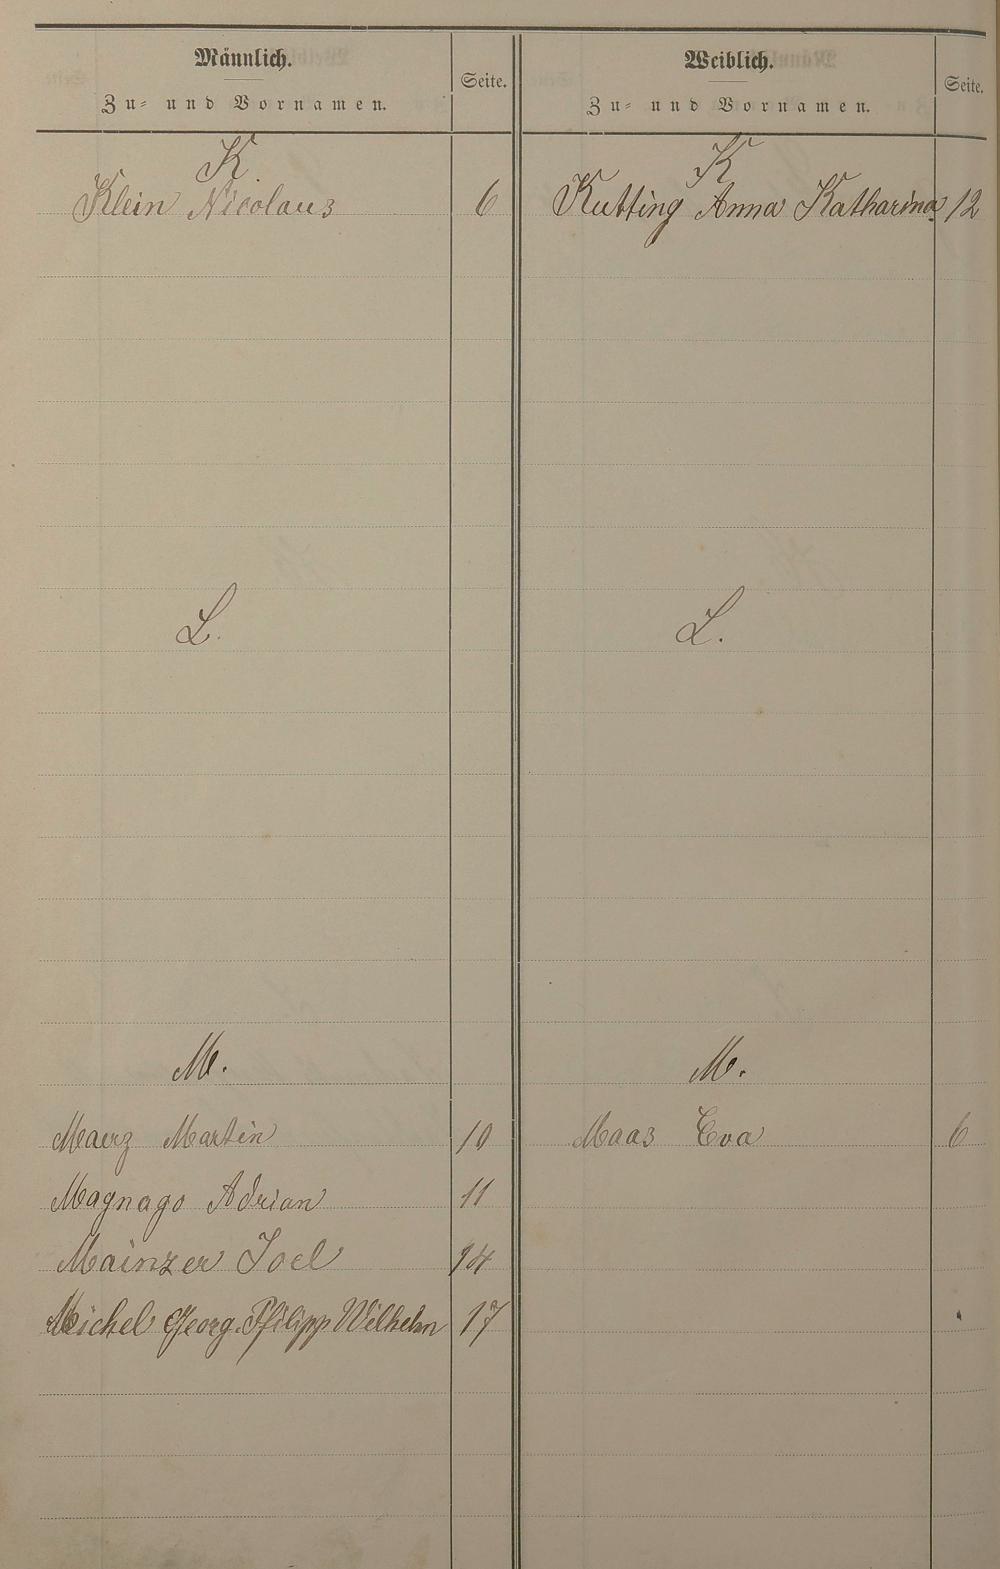 Männlich.
Zu- und Vornamen.
Seite.
K.
Klein Nicolaus 6
L.
M.
Maerz Martin 10
Magnago Adrian 11
Mainzer Joel 14
Michel Georg Philipp Wilhelm 17
Weiblich.
Zu- und Vornamen.
Seite.
K
Kutting Anna Katharina 12
L.
M.
Maas Eva 6